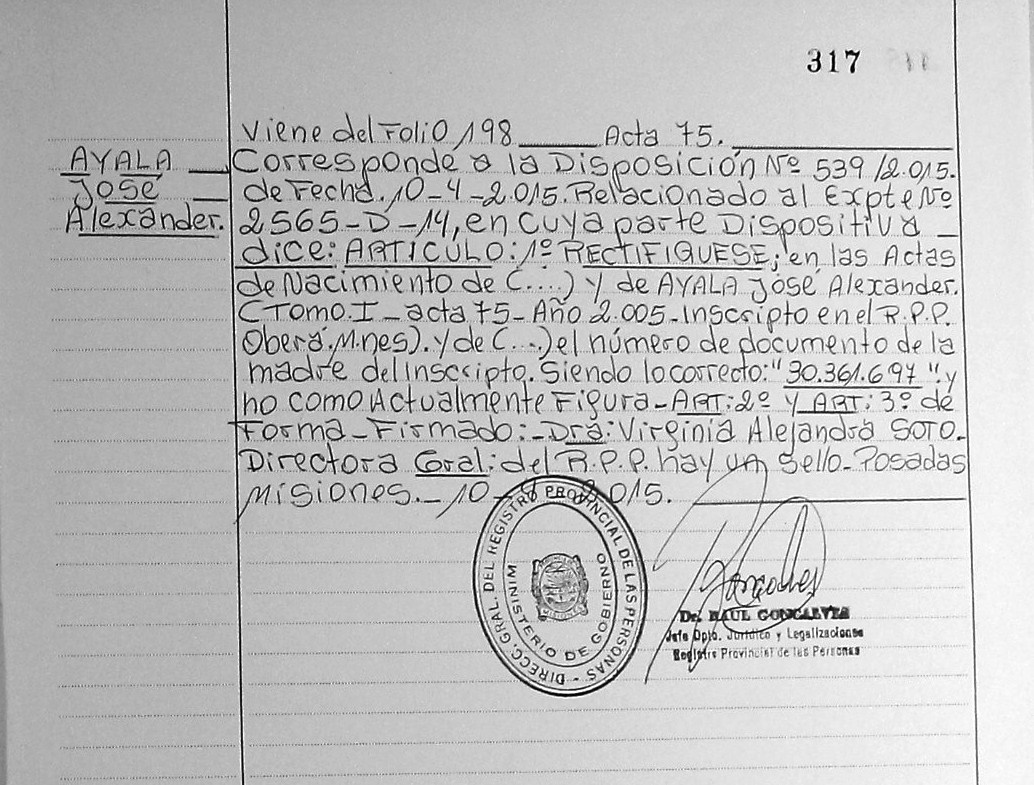 317
Viene del Folio 198 Acta 75.
AYALA
José
Alexander.
Corresponde a la Disposición Nº 539/2.015.
de Fecha. 10-4-2.015. Relacionado al Expte Nº
2565-D-14, en Cuya parte Dispositiva
dice: ARTICULO: 1º RECTIFIQUESE; en las Actas
de Nacimiento de (....) y de AYALA José Alexander.
(Tomo.I - acta 75 - Año 2.005 - Inscripto en el R.P.P.
Oberá. M.nes). y de (...) el número de documento de la
madre del inscripto. Siendo lo correcto: "30.361.697". y
no como Actualmente Figura - ART: 2º y ART: 3º de
Forma - Firmado: - Dra: Virginia Alejandra SOTO.
Directora Gral: del R.P.P. hay un sello - Posadas
Misiones. - 10- 2015.
DIRECC. GRAL. DEL REGISTRO PROVINCIAL DE LAS PERSONAS -
MINISTERIO DE GOBIERNO
MISIONES
Dr. RAUL GONCALVES
Jefe Dpto. Jurídico y Legalizaciones
Registro Provincial de las Personas